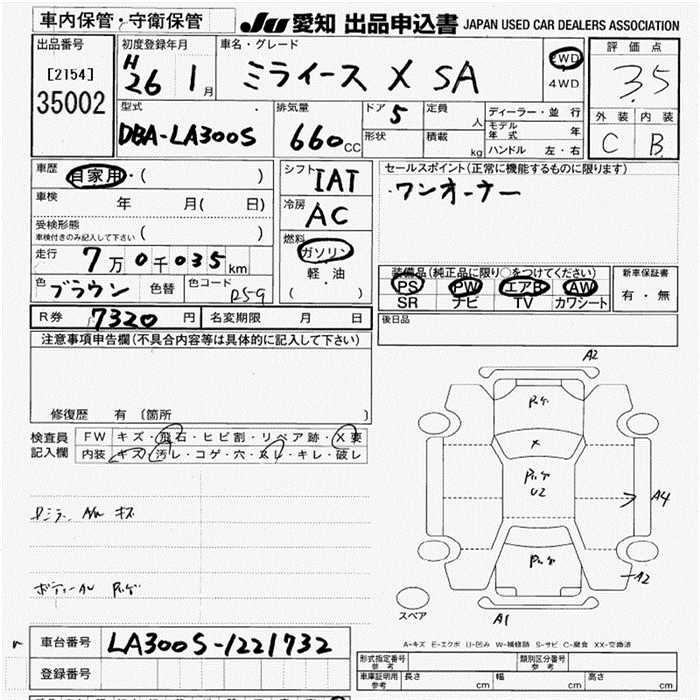 車内保管・守衛保管 JU 愛知 出品申込書 JAPAN USED CAR DEALERS ASSOCIATION
出品番号
[2154]
35002
初度登録年月
H26 1月
車名・グレード
ミライース X SA
2WD
4WD
評価点
3.5
外装 内装
C B
型式
DBA-LA300S
排気量
660CC
ドア 5
形状
定員 人
積載 kg
ディーラー・並行
モデル年式 年
ハンドル 左・右
車歴 自家用・( )
車検 年 月( 日)
受検形態
車検付きのみ記入して下さい ( )
走行 7万0千035km
色 ブラウン 色替 色コード R59
シフト IAT
冷房 AC
燃料
ガソリン
軽油
( )
セールスポイント(正常に機能するものに限ります)
ワンオーナー
装備品(純正品に限り○をつけてください)
PS PW エアB AW
SR ナビ TV カワシート
新車保証書
有・無
R券 7320円 名変期限 月 日
後日品
注意事項申告欄(不具合内容等は具体的に記入して下さい)
修復歴 有 〔箇所 〕
検査員記入欄
FW キズ・飛石・ヒビ割・リペア跡・X要
内装 キズ・汚レ・コゲ・穴・スレ・キレ・破レ
キズ
A2
X
U2
A4
A2
A1
スペア
A-キズ E-エクボ U-凹み W-補修跡 S-サビ C-腐食 XX-交換済
車台番号 LA300S-1221732
登録番号
形式指定番号 参考
類別区分番号 参考
車庫証明用 参考 長さ cm 幅 cm 高さ cm